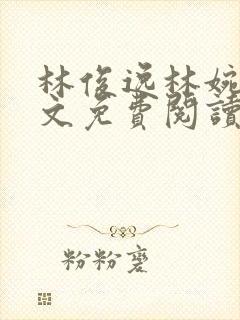 林俊逸林婉
文免費閱讀
粉粉蹇